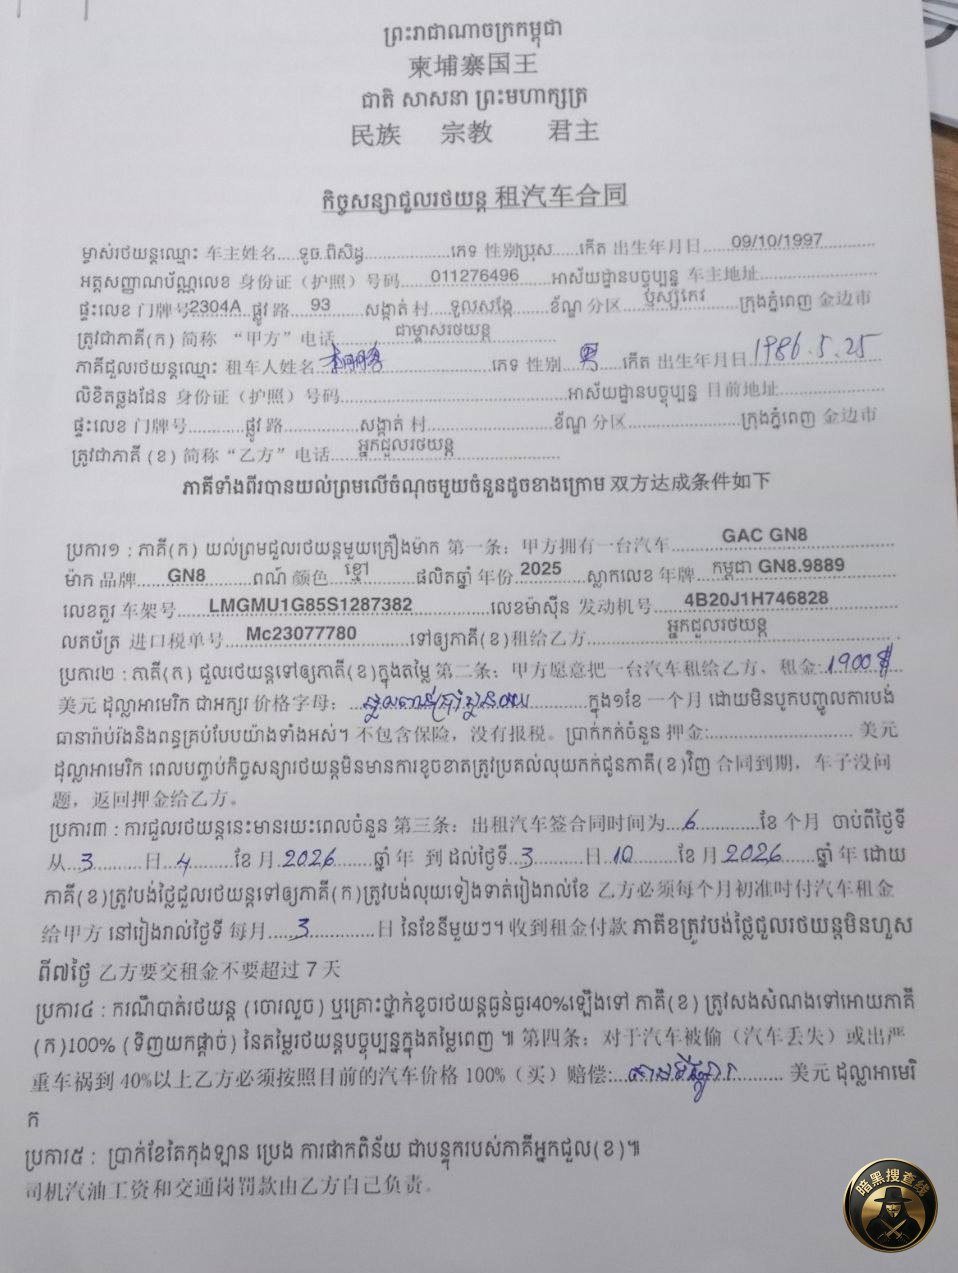 ព្រះរាជាណាចក្រកម្ពុជា
柬埔寨国王
ជាតិ សាសនា ព្រះមហាក្សត្រ
民族 宗教 君主
កិច្ចសន្យាជួលរថយន្ត 租汽车合同
ម្ចាស់រថយន្តឈ្មោះ 车主姓名....ទូច.ពិសិដ្ឋ..........ភេទ 性别ប្រុស.....កើត 出生年月日....09/10/1997
អត្តសញ្ញាណប័ណ្ណលេខ 身份证（护照）号码.....011276496......អាស័យដ្ឋានបច្ចុប្បន្ន 车主地址..........
ផ្ទះលេខ 门牌号2304A ផ្លូវ 路...93.....សង្កាត់ 村...ទួលសង្កែ.....ខ័ណ្ឌ 分区....ឬស្សីកែវ.....ក្រុងភ្នំពេញ 金边市
ត្រូវជាភាគី(ក) 简称 “甲方” 电话........ជាម្ចាស់រថយន្ត........
ភាគីជួលរថយន្តឈ្មោះ 租车人姓名..............ភេទ 性别 男...កើត 出生年月日 1986.5.25
លិខិតឆ្លងដែន 身份证（护照）号码..............អាស័យដ្ឋានបច្ចុប្បន្ន 目前地址..........
ផ្ទះលេខ 门牌号..........ផ្លូវ 路..........សង្កាត់ 村..........ខ័ណ្ឌ 分区..........ក្រុងភ្នំពេញ 金边市
ត្រូវជាភាគី (ខ) 简称“乙方” 电话....អ្នកជួលរថយន្ត........
ភាគីទាំងពីរបានយល់ព្រមលើចំណុចមួយចំនួនដូចខាងក្រោម 双方达成条件如下
ប្រការ១ : ភាគី(ក) យល់ព្រមជួលរថយន្តមួយគ្រឿងម៉ាក 第一条：甲方拥有一台汽车........GAC GN8........
ម៉ាក 品牌.....GN8.......ពណ៌ 颜色..ខ្មៅ......ផលិតឆ្នាំ 年份.2025....ស្លាកលេខ 年牌...កម្ពុជា GN8.9889......
លេខតួរ 车架号....LMGMU1G85S1287382..........លេខម៉ាស៊ីន 发动机号....4B20J1H746828......
លតប័ត្រ 进口税单号...Mc23077780........ទៅឲ្យភាគី(ខ)租给乙方........អ្នកជួលរថយន្ត........
ប្រការ២ : ភាគី(ក) ជួលរថយន្តទៅឲ្យភាគី(ខ)ក្នុងតម្លៃ 第二条：甲方愿意把一台汽车租给乙方、租金:1900 $
美元 ដុល្លាអាមេរិក ជាអក្សរ 价格字母：..............ក្នុង១ខែ 一个月 ដោយមិនបូកបញ្ចូលការបង់
ធានារ៉ាប់រ៉ងនិងពន្ធគ្រប់បែបយ៉ាងទាំងអស់។ 不包含保险，没有报税。ប្រាក់កក់ចំនួន 押金:.................... 美元
ដុល្លាអាមេរិក ពេលបញ្ចប់កិច្ចសន្យារថយន្តមិនមានការខូចខាតត្រូវប្រគល់លុយកក់ជូនភាគី(ខ)វិញ 合同到期，车子没问
题，返回押金给乙方。
ប្រការ៣ : ការជួលរថយន្តនេះមានរយះពេលចំនួន 第三条：出租汽车签合同时间为..6..........ខែ 个月 ចាប់ពីថ្ងៃទី
从..3.......日..4......ខែ 月.2026......ឆ្នាំ 年 到 ដល់ថ្ងៃទី..3.......日.10......ខែ 月 2026......ឆ្នាំ 年 ដោយ
ភាគី(ខ)ត្រូវបង់ថ្លៃជួលរថយន្តទៅឲ្យភាគី(ក)ត្រូវបង់លុយទៀងទាត់រៀងរាល់ខែ 乙方必须每个月初准时付汽车租金
给甲方 នៅរៀងរាល់ថ្ងៃទី 每月.....3............日 នៃខែនីមួយៗ។ 收到租金付款 ភាគីខត្រូវបង់ថ្លៃជួលរថយន្តមិនហួស
ពី៧ថ្ងៃ 乙方要交租金不要超过 7 天
ប្រការ៤ : ករណីបាត់រថយន្ត (ចោរលួច) ឬគ្រោះថ្នាក់ខូចរថយន្តធ្ងន់ធ្ងរ40%ឡើងទៅ ភាគី(ខ) ត្រូវសងសំណងទៅអោយភាគី
(ក)100% (ទិញយកផ្តាច់) នៃតម្លៃរថយន្តបច្ចុប្បន្នក្នុងតម្លៃពេញ ៕ 第四条：对于汽车被偷（汽车丢失）或出严
重车祸到 40%以上乙方必须按照目前的汽车价格 100%（买）赔偿:.................... 美元 ដុល្លាអាមេរិ
ក
ប្រការ៥ : ប្រាក់ខែតៃកុងឡាន ប្រេង ការផាកពិន័យ ជាបន្ទុករបស់ភាគីអ្នកជួល(ខ)៕
司机汽油工资和交通岗罚款由乙方自己负责。
暗黑搜查线